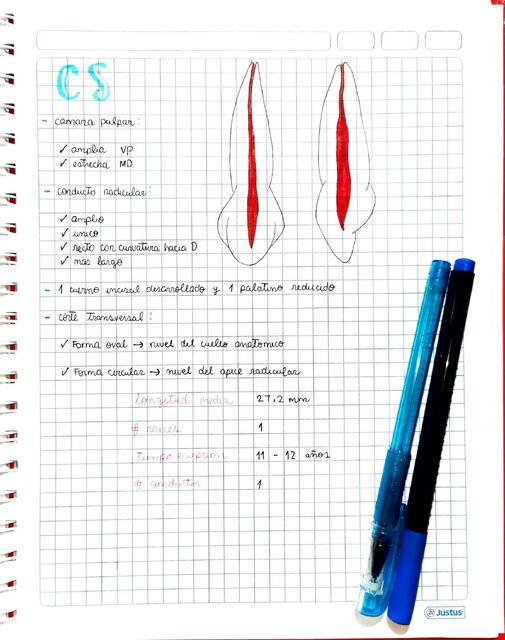 CS
- camara pulpar:
✓ amplia VP
✓ estrecha MD
- conducto radicular:
✓ amplio
✓ unico
✓ recto con curvatura hacia D
✓ mas largo
- 1 cuerno incisal desarrollado y 1 palatino reducido
- corte transversal:
✓ Forma oval → nivel del cuello anatomico
✓ Forma circular → nivel del apice radicular
longitud media 27.2 mm
# raices 1
tiempo erupcion 11 - 12 años
# conductos 1
Justus